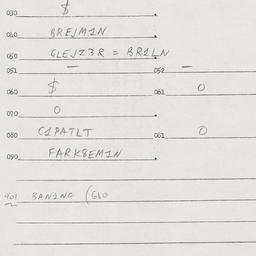 030 $
040 BREJM1N
050 GLEJZ3R = BR1LN
051 — 052 —
060 $ 061 0
070 0
080 C1PATLT 081 0
090 FARK8EM1N
901 BAN1NG (GLO